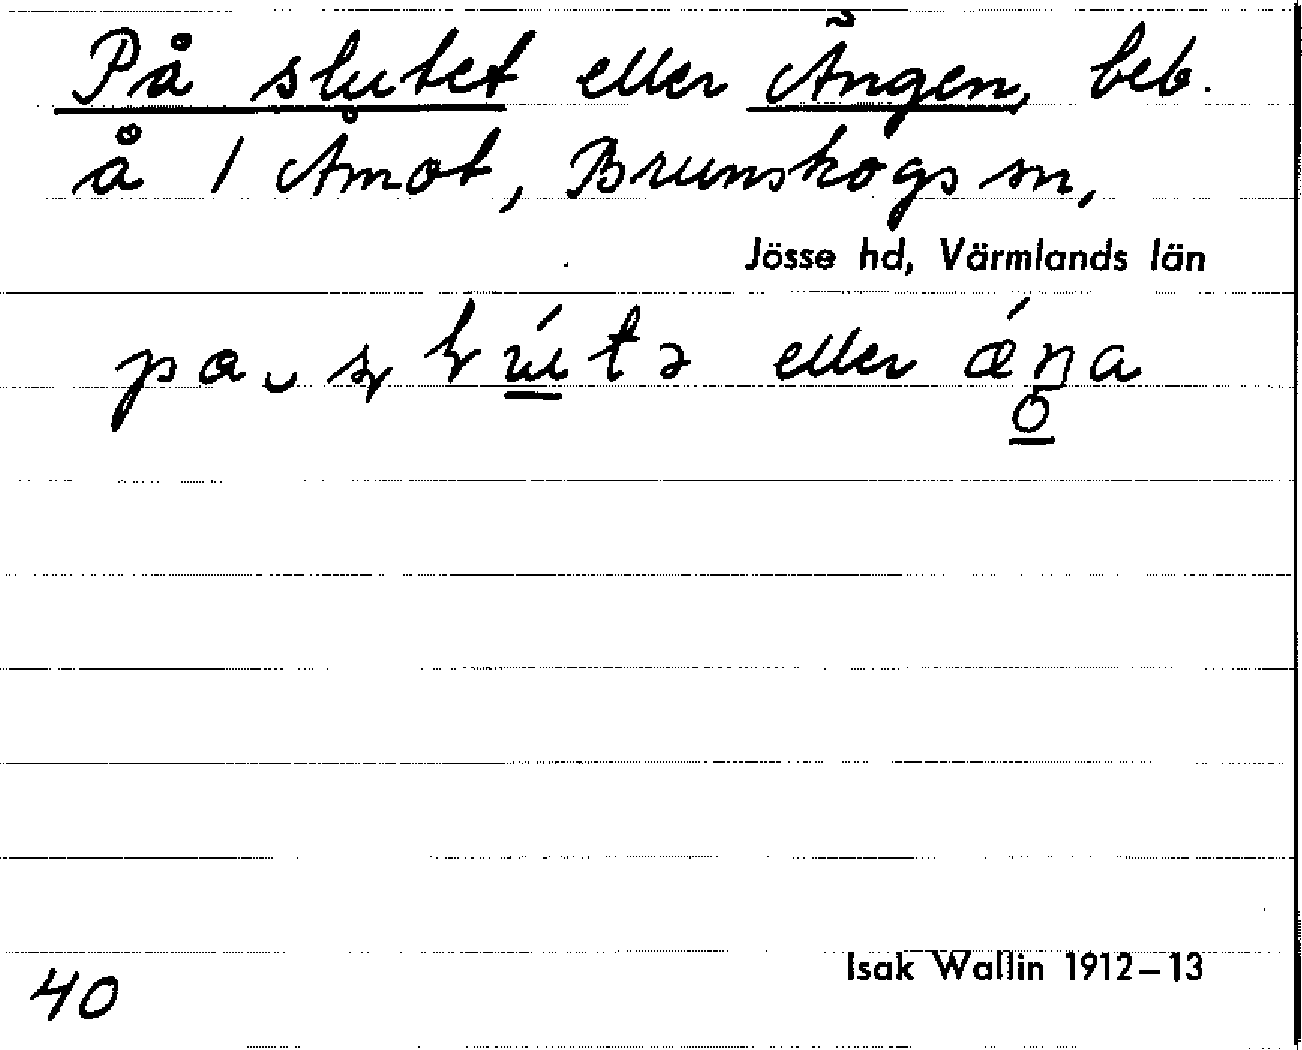 På slutet eller Ängen, beb.
å 1 Åmot, Brunskogs sn,
Jösse hd, Värmlands län
eller
40
Isak Wallin 1912–13